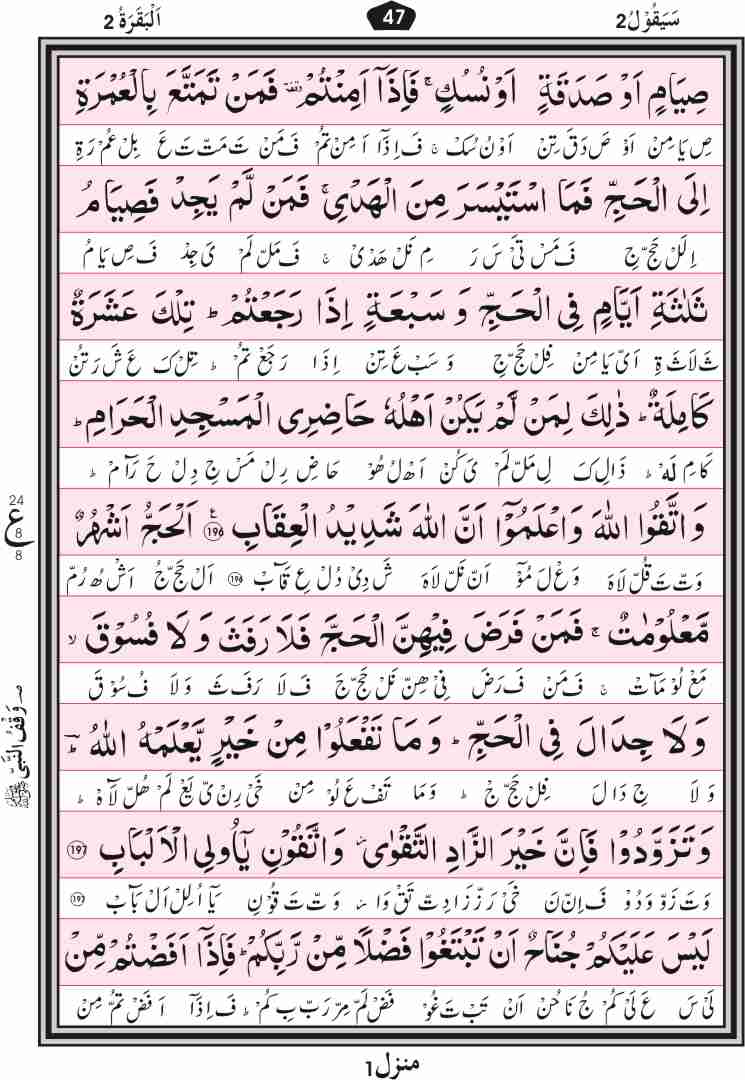 سَيَقُوْلُ2 47 اَلْبَقَرَةُ 2
صِيَامٍ اَوْ صَدَقَةٍ اَوْ نُسُكٍ ۚ فَاِذَاۤ اَمِنْتُمْ ۥ فَمَنْ تَمَتَّعَ بِالْعُمْرَةِ
صِ يَا مِنْ اَوْ صَ دَقَ تِنْ اَوْ نُ سُكْ ۚ فَ اِذَاۤ اَ مِنْ تُمْ فَ مَنْ تَ مَتْ تَ عَ بِلْ عُمْ رَةِ
اِلَى الْحَجِّ فَمَا اسْتَيْسَرَ مِنَ الْهَدْىِ ۚ فَمَنْ لَّمْ يَجِدْ فَصِيَامُ
اِلَلْ حَجْ جِ فَ مَسْ تَىْ سَ رَ مِ نَلْ هَدْىْ ۚ فَ مَلْ لَمْ ىَ جِدْ فَ صِ يَا مُ
ثَلٰثَةِ اَيَّامٍ فِى الْحَجِّ وَ سَبْعَةٍ اِذَا رَجَعْتُمْ ؕ تِلْكَ عَشَرَةٌ
ثَ لَا ثَ ةِ اَىْ يَا مِنْ فِلْ حَجْ جِ وَ سَبْ عَ تِنْ اِذَا رَ جَعْ تُمْ ؕ تِلْ كَ عَ شَ رَ تُنْ
كَامِلَةٌ ؕ ذٰلِكَ لِمَنْ لَّمْ يَكُنْ اَهْلُهٗ حَاضِرِى الْمَسْجِدِ الْحَرَامِ ؕ
كَا مِ لَه ؕ ذَا لِ كَ لِ مَلْ لَمْ ىَ كُنْ اَهْ لُ هُوْ حَا ضِ رِ لْ مَسْ جِ دِ لْ حَ رَاۤ مْ ؕ
وَ اتَّقُوا اللّٰهَ وَ اعْلَمُوْۤا اَنَّ اللّٰهَ شَدِيْدُ الْعِقَابِ ۧ 196 اَلْحَجُّ اَشْهُرٌ
وَتْ تَ قُلْ لَاهَ وَعْ لَ مُوْۤ اَنْ نَلْ لَاهَ شَ دِىْ دُ لْ عِ قَاۤبْ 196 اَلْ حَجْ جُ اَشْ هُ رُمْ
مَّعْلُوْمٰتٌ ۚ فَمَنْ فَرَضَ فِيْهِنَّ الْحَجَّ فَلَا رَفَثَ وَ لَا فُسُوْقَ ۙ
مَعْ لُوْ مَاۤتْ ۚ فَ مَنْ فَ رَضَ فِىْ هِنْ نَلْ حَجْ جَ فَ لَا رَ فَ ثَ وَ لَا فُ سُوْ قَ
وَ لَا جِدَالَ فِى الْحَجِّ ؕ وَ مَا تَفْعَلُوْا مِنْ خَيْرٍ يَّعْلَمْهُ اللّٰهُ ؔ
وَ لَا جِ دَا لَ فِلْ حَجْ جْ ؕ وَ مَا تَفْ عَ لُوْ مِنْ خَىْ رِنْ ىْ يَعْ لَمْ هُلْ لَاۤهْ ؕ
وَ تَزَوَّدُوْا فَاِنَّ خَيْرَ الزَّادِ التَّقْوٰى ۫ وَ اتَّقُوْنِ يٰۤاُولِى الْاَلْبَابِ 197
وَ تَ زَوْ وَ دُوْ فَ اِنْ نَ خَىْ رَزْ زَا دِتْ تَقْ وَا وَتْ تَ قُوْنِ يَاۤ اُلِلْ اَلْ بَاۤبْ 197
لَيْسَ عَلَيْكُمْ جُنَاحٌ اَنْ تَبْتَغُوْا فَضْلًا مِّنْ رَّبِّكُمْ ؕ فَاِذَاۤ اَفَضْتُمْ مِّنْ
لَىْ سَ عَ لَىْ كُمْ جُ نَا حُنْ اَنْ تَبْ تَ غُوْ فَضْ لَمْ مِرْ رَبْ بِ كُمْ ؕ فَ اِذَاۤ اَ فَضْ تُمْ مِنْ
24
ع
8
8
وَقْفُ النَّبِىِّ ﷺ
منزل1